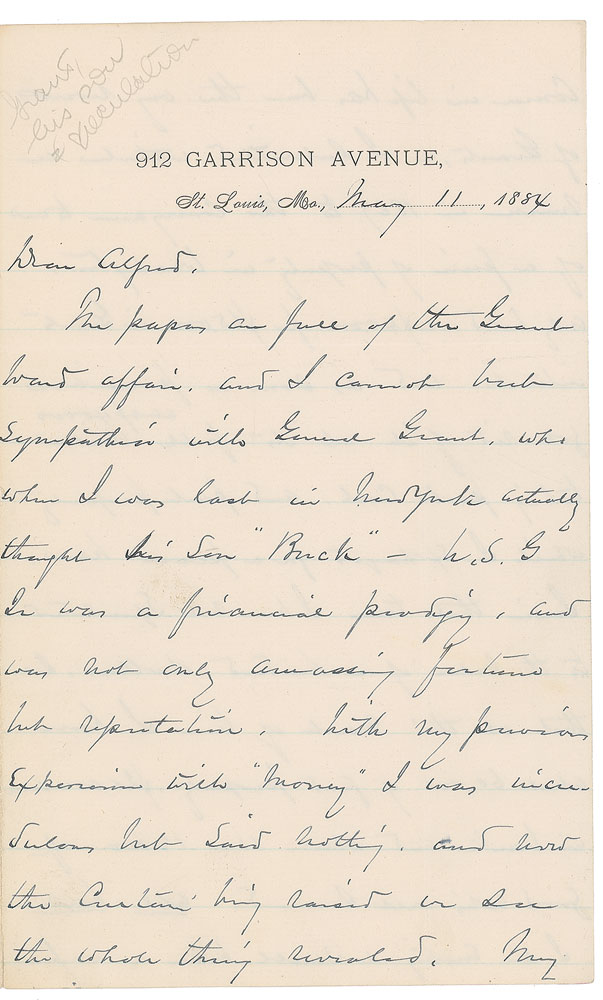 Grant,
his son
& speculation
912 GARRISON AVENUE,
St. Louis, Mo., May 11, 1884
Dear Alfred,
The papers are full of the Grant
Ward affair, and I cannot but
Sympathise with General Grant, who
when I was last in New York actually
thought his Son "Buck" - U.S.G
Jr was a financial prodigy, and
was not only amassing fortune
but reputation. With my previous
Experience with "Money" I was incre-
dulous but Said nothing, and now
the Curtain being raised we See
the whole thing revealed. My